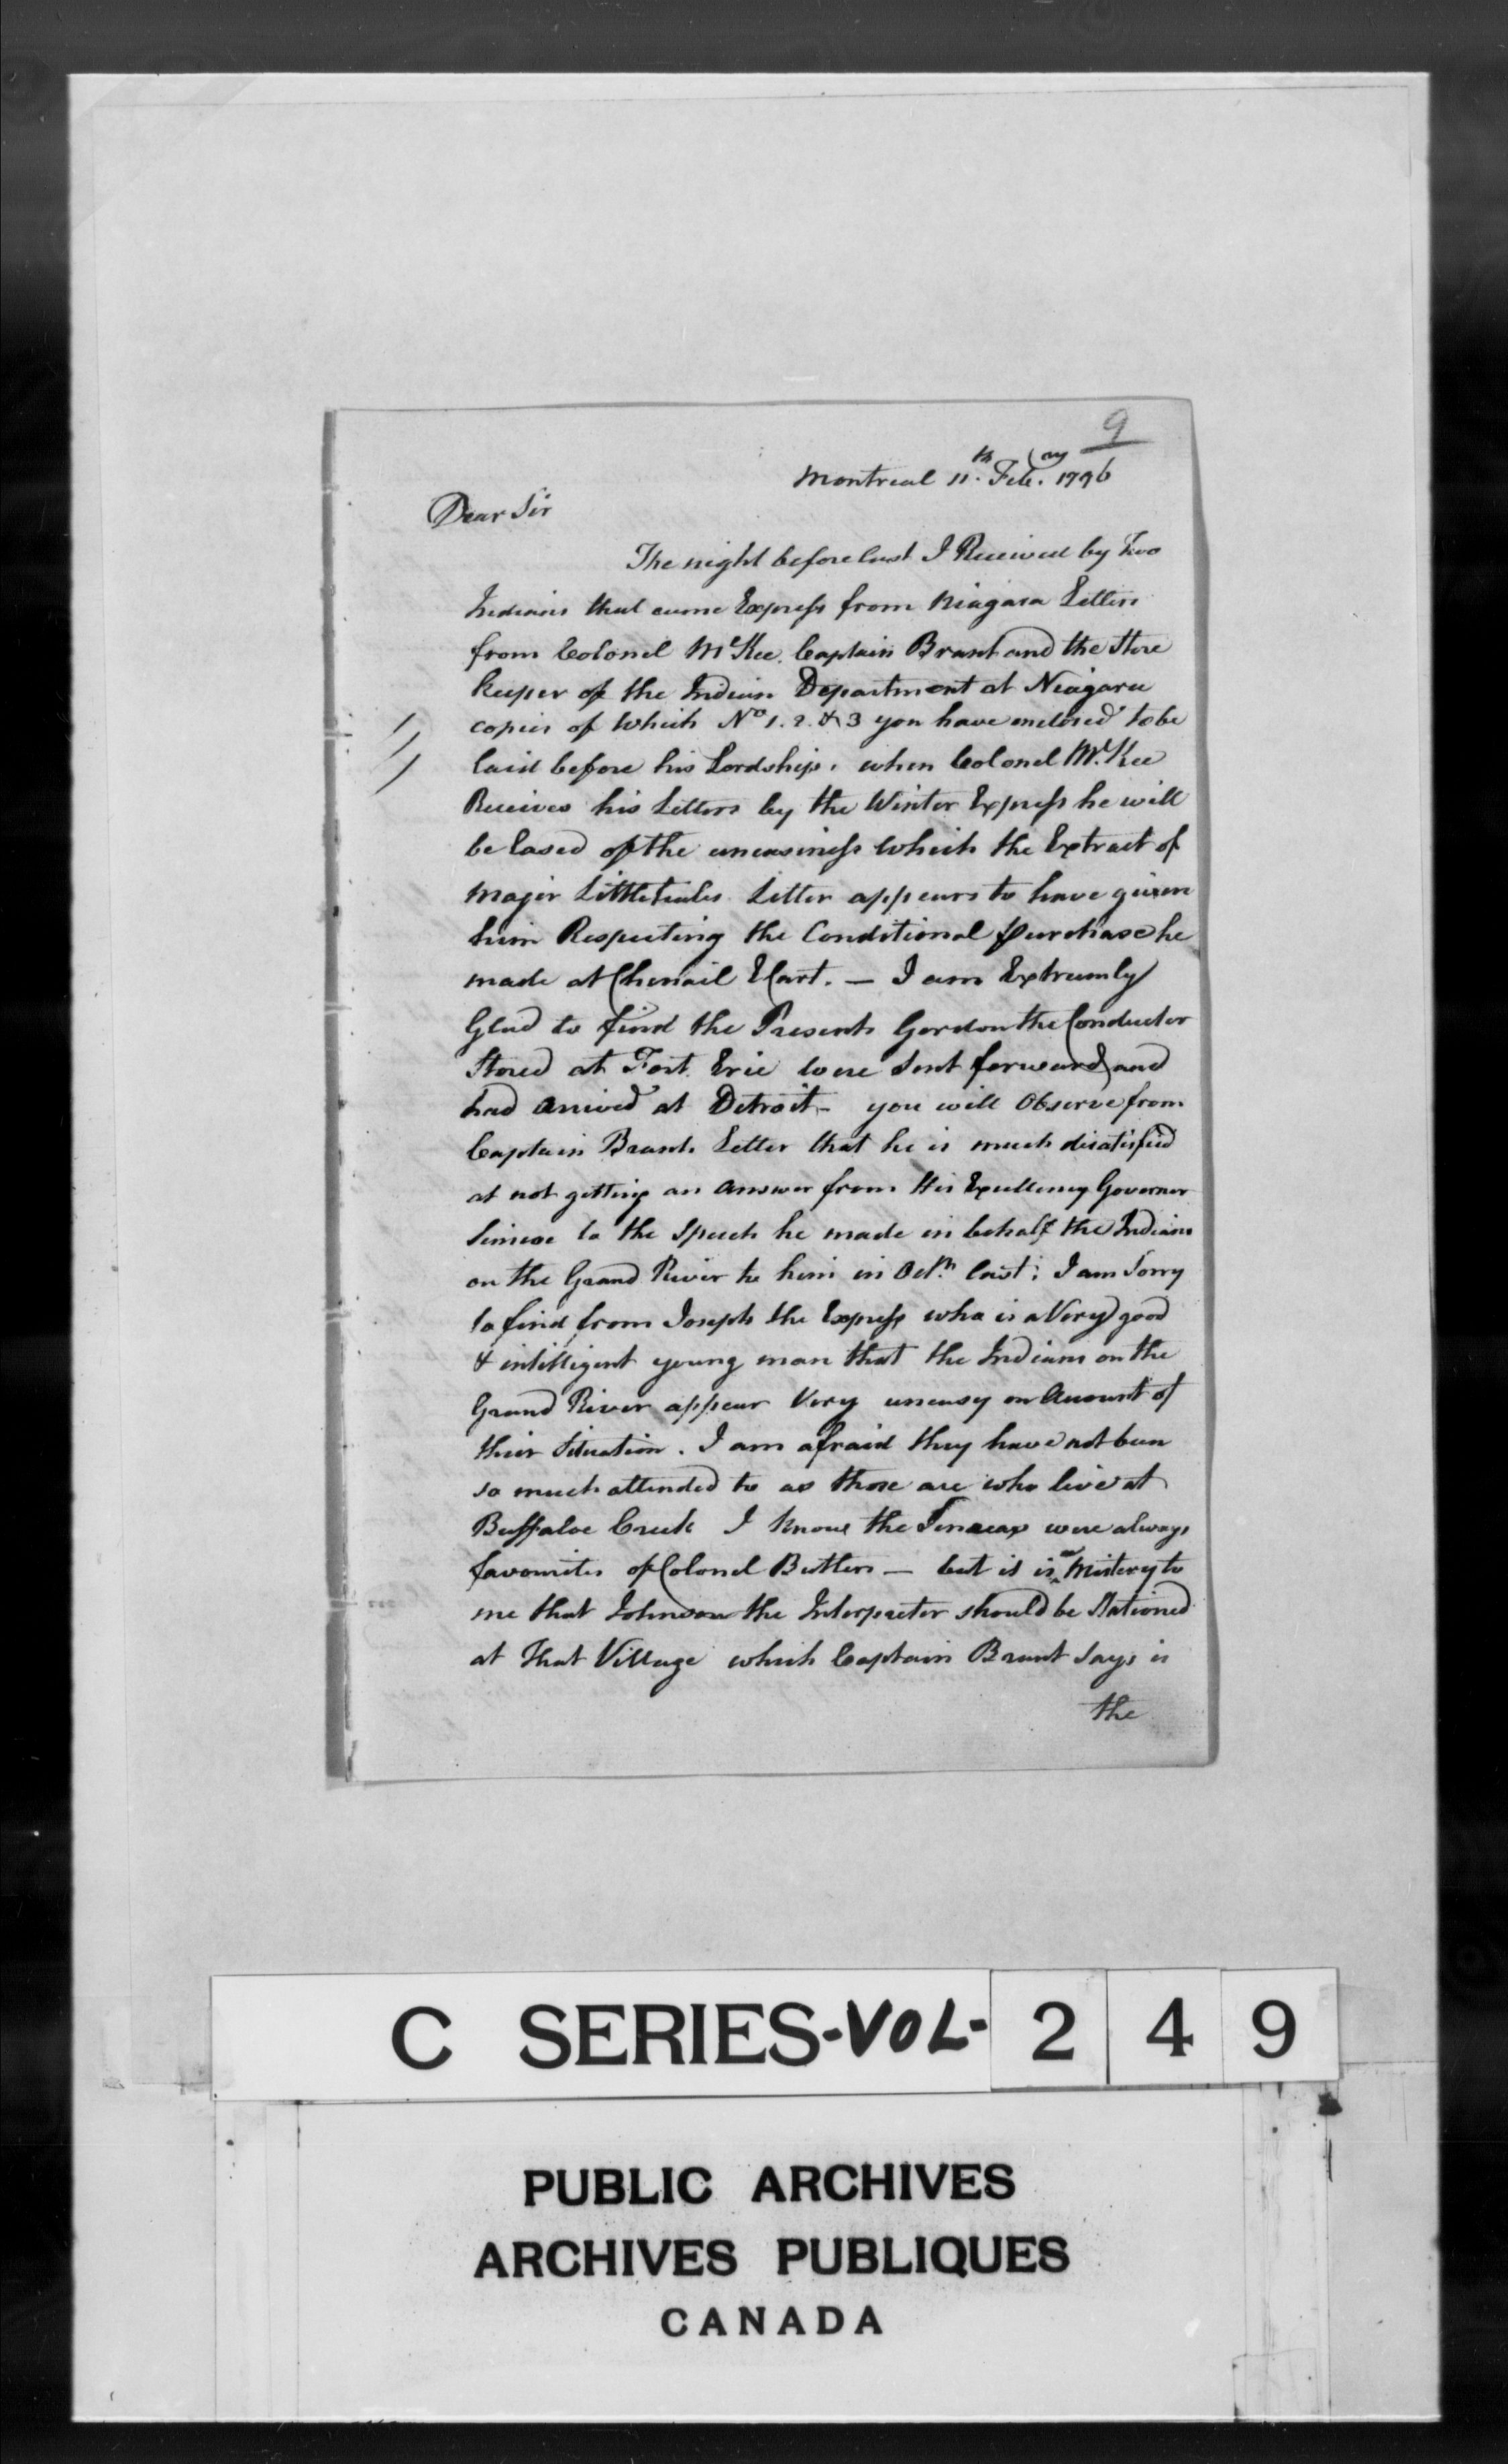 9
Montreal 11.th Feb.ry 1796
Dear Sir
The night before last I Received by Two
Indians that came Express from Niagara Letters
from Colonel McKee. Captain Brant and the Store
keeper of the Indian Department at Niagara
copies of which No 1. 2. & 3 you have enclosed to be
laid before his Lordship. when Colonel McKee
Receives his Letters by the Winter Express he will
be Eased of the uneasiness which the Extract of
Major Littlehales Letter appears to have given
him Respecting the Conditional purchase he
made at Chenail Ecart. — I am Extreemly
Glad to find the Presents Gordon the Conductor
Stored at Fort Erie were Sent forward and
had arrived at Detroit - you will Observe from
Captain Brants Letter that he is much disatisfied
at not getting an answer from His Excellency Governor
Simcoe to the Speech he made in behalf the Indians
on the Grand River to him in Oct.r last; I am Sorry
to find from Joseph the Express who is a Very good
& intilligent young man that the Indians on the
Grand River appear Very uneasy on Account of
their Situation. I am afraid they have not been
so much attended to as those are who live at
Buffaloe Creek I know the were always
favourites of Colonel Butlers — but it is a Mistery to
me that Johnson the Interpreter should be Stationed
at that Village which Captain Brant Says is
the
C SERIES-VOL-249
PUBLIC ARCHIVES
ARCHIVES PUBLIQUES
CANADA